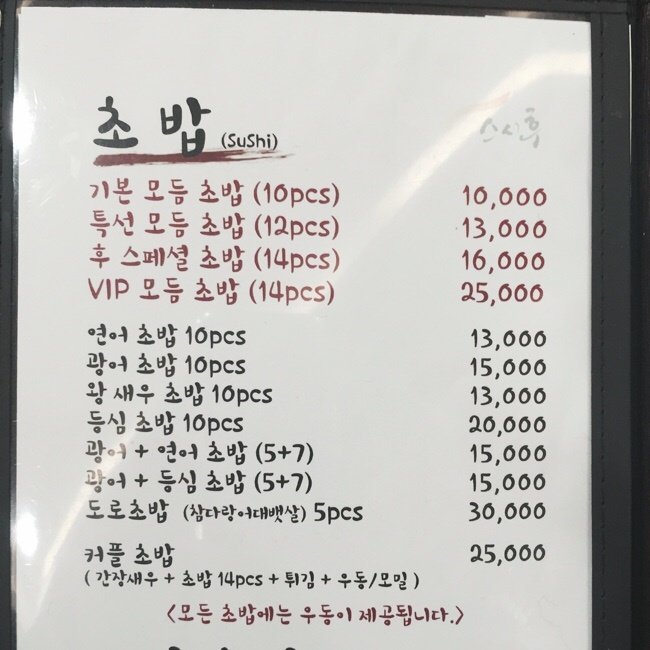 초밥 (Sushi)
스시후
기본 모듬 초밥 (10pcs) 10,000
특선 모듬 초밥 (12pcs) 13,000
후 스페셜 초밥 (14pcs) 16,000
VIP 모듬 초밥 (14pcs) 25,000
연어 초밥 10pcs 13,000
광어 초밥 10pcs 15,000
왕새우 초밥 10pcs 13,000
등심 초밥 10pcs 20,000
광어 + 연어 초밥 (5+7) 15,000
광어 + 등심 초밥 (5+7) 15,000
도로초밥 (참다랑어대뱃살) 5pcs 30,000
커플 초밥 25,000
( 간장새우 + 초밥 14pcs + 튀김 + 우동/모밀 )
<모든 초밥에는 우동이 제공됩니다.>